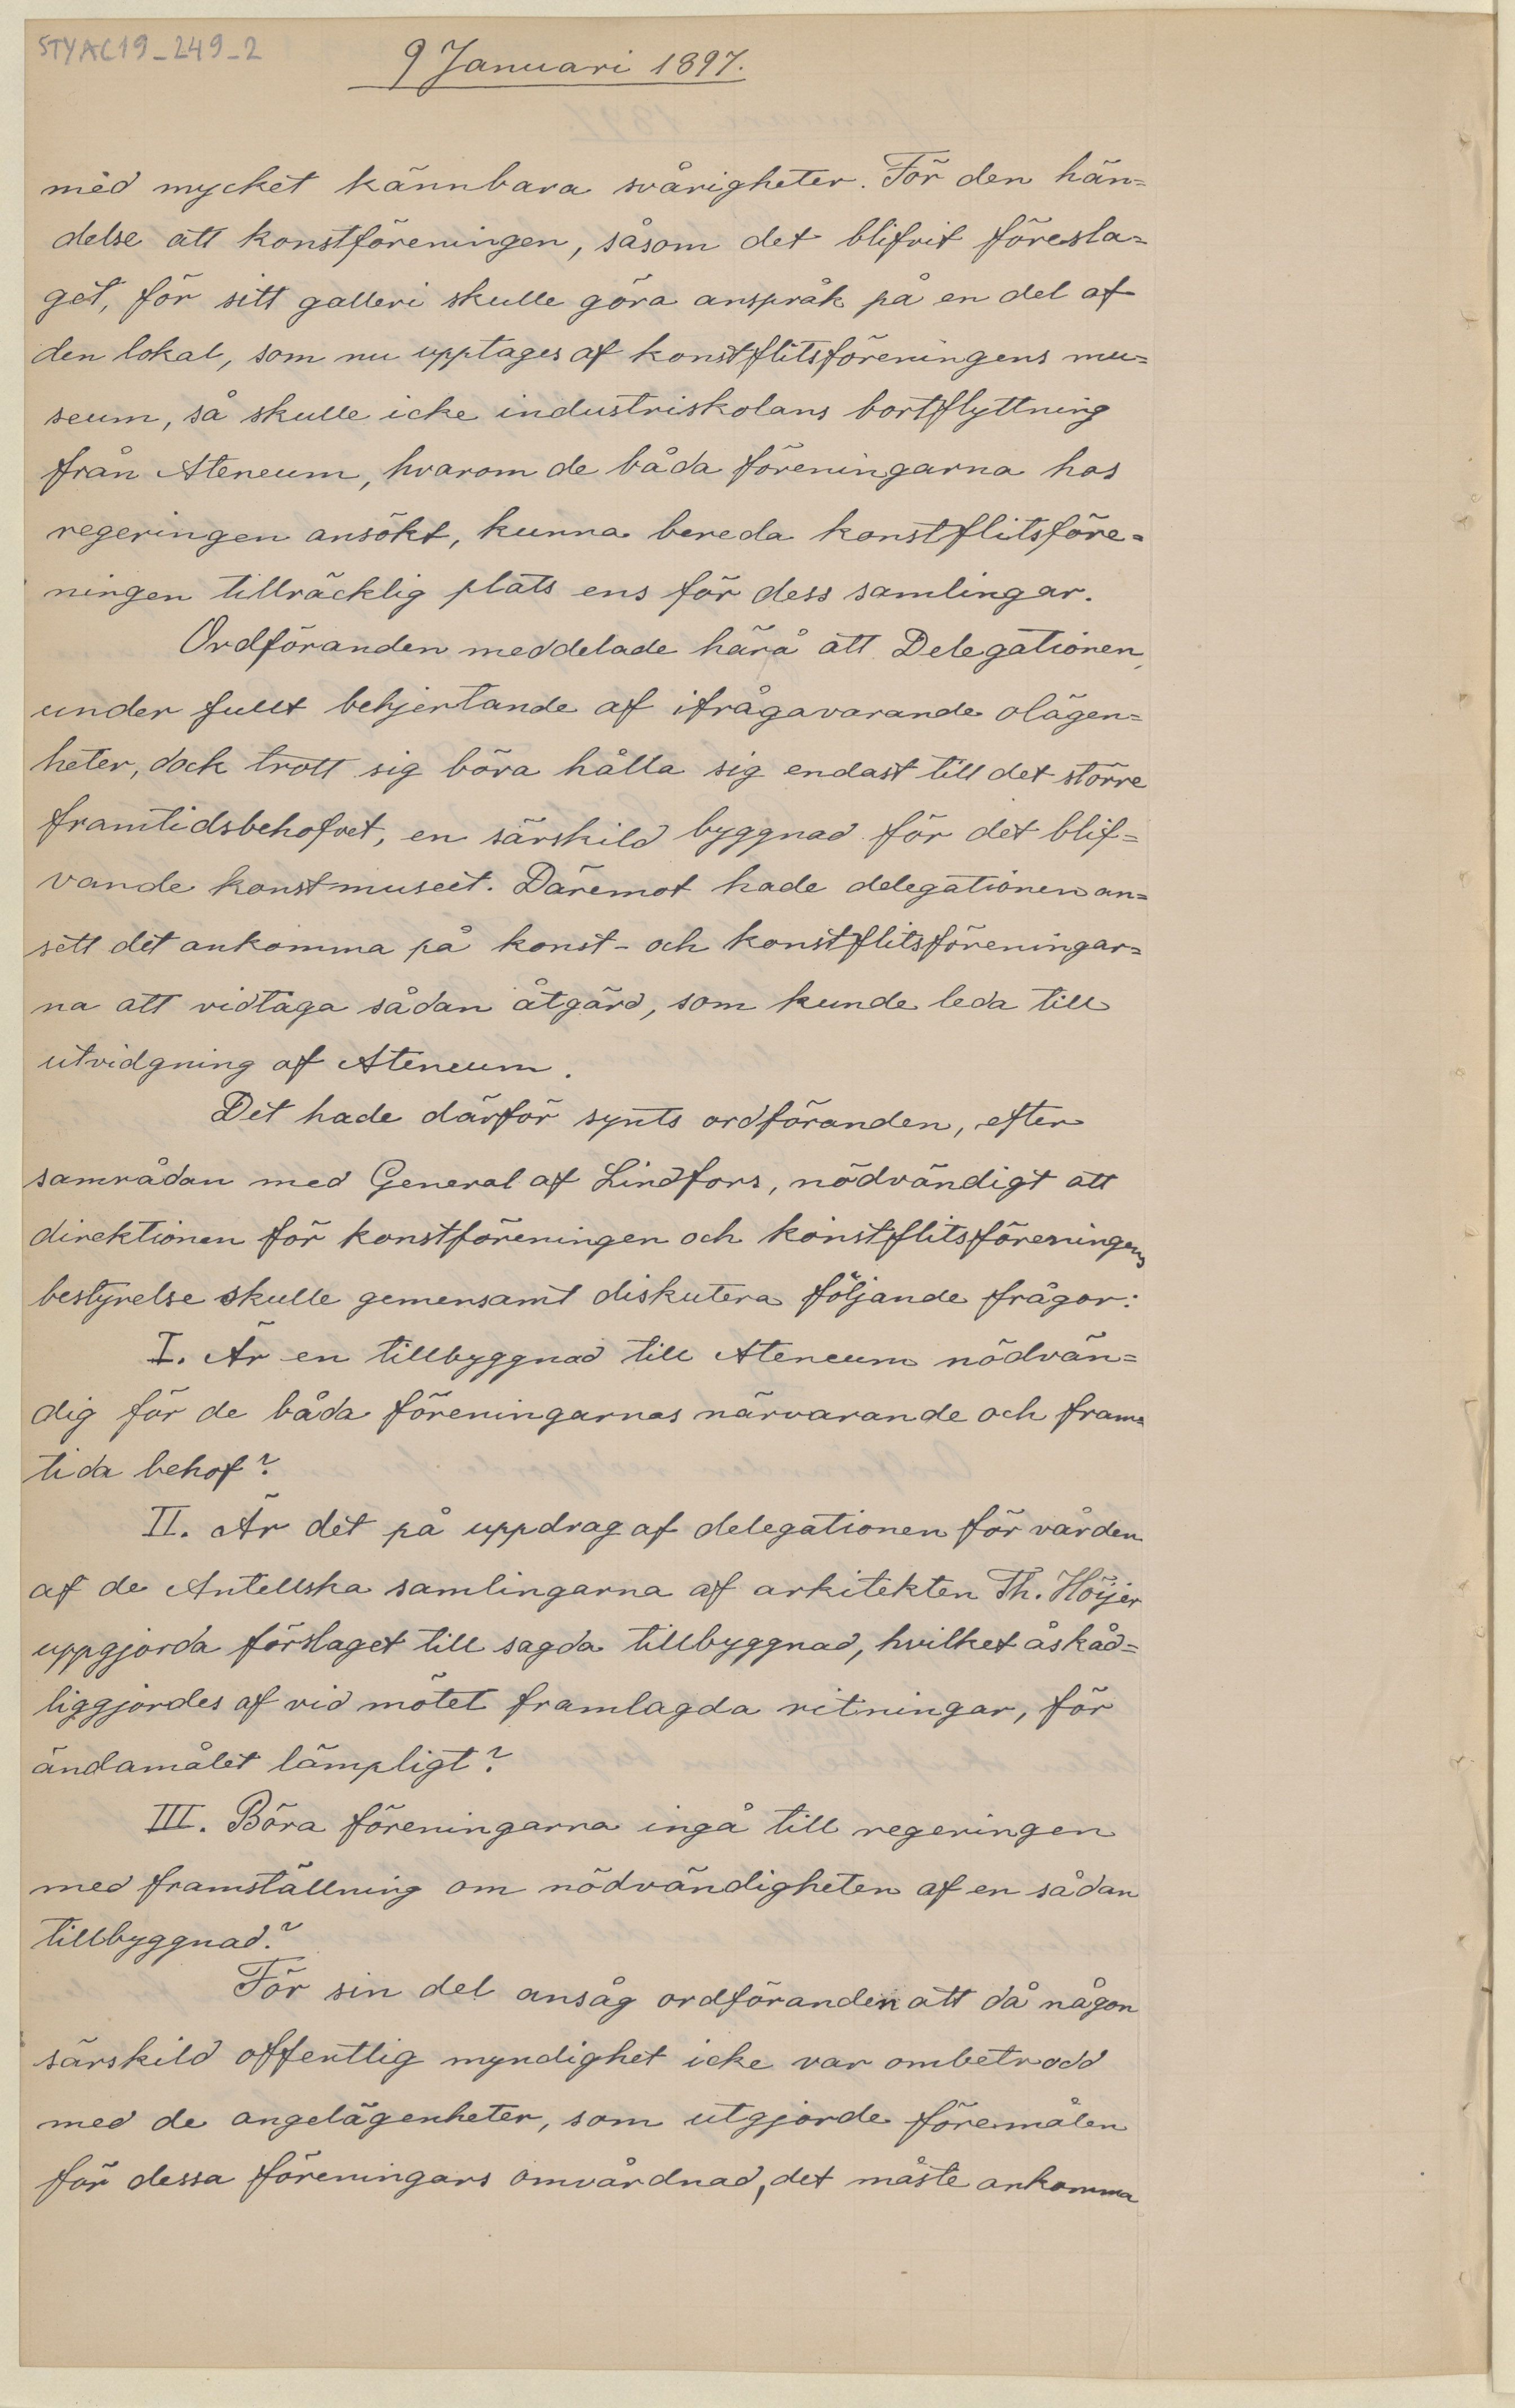 STYAC19_249_2
9 Januari 1897.
med mycket kännbara svårigheter. För den hän=
delse att konstföreningen, såsom det blifvit föresla=
get, för sitt galleri skulle göra anspråk på en del af
den lokal, som nu upptages af konstflitsföreningens mu=
seum, så skulle icke industriskolans bortflyttning
från Ateneum, hvarom de båda föreningarna hos
regeringen ansökt, kunna bereda konstflitsföre=
ningen tillräcklig plats ens för dess samlingar.
Ordföranden meddelade härå att Delegationen,
under fullt behjertande af ifrågavarande olägen=
heter, dock trott sig böra hålla sig endast till det större
framtidsbehofvet, en särskild byggnad för det blif=
vande konstmuseet. Däremot hade delegationen an=
sett det ankomma på konst- och konstflitsföreningar=
na att vidtaga sådan åtgärd, som kunde leda till
utvidgning af Ateneum.
Det hade därför synts ordföranden, efter
samrådan med General af Lindfors, nödvändigt att
direktionen för konstföreningen och konstflitsföreningens
bestyrelse skulle gemensamt diskutera följande frågor:
I. Är en tillbyggnad till Ateneum nödvän=
dig för de båda föreningarnas närvarande och fram=
tida behof?
II. Är det på uppdrag af delegationen för vården
af de Antellska samlingarna af arkitekten Th. Höijer
uppgjorda förslaget till sagda tillbyggnad, hvilket åskåd=
liggjordes af vid mötet framlagda ritningar, för
ändamålet lämpligt?
III. Böra föreningarna ingå till regeringen
med framställning om nödvändigheten af en sådan
tillbyggnad?
För sin del ansåg ordföranden att då någon
särskild offentlig myndighet icke var ombetrodd
med de angelägenheter, som utgjorde föremålen
för dessa föreningars omvårdnad, det måste ankomma